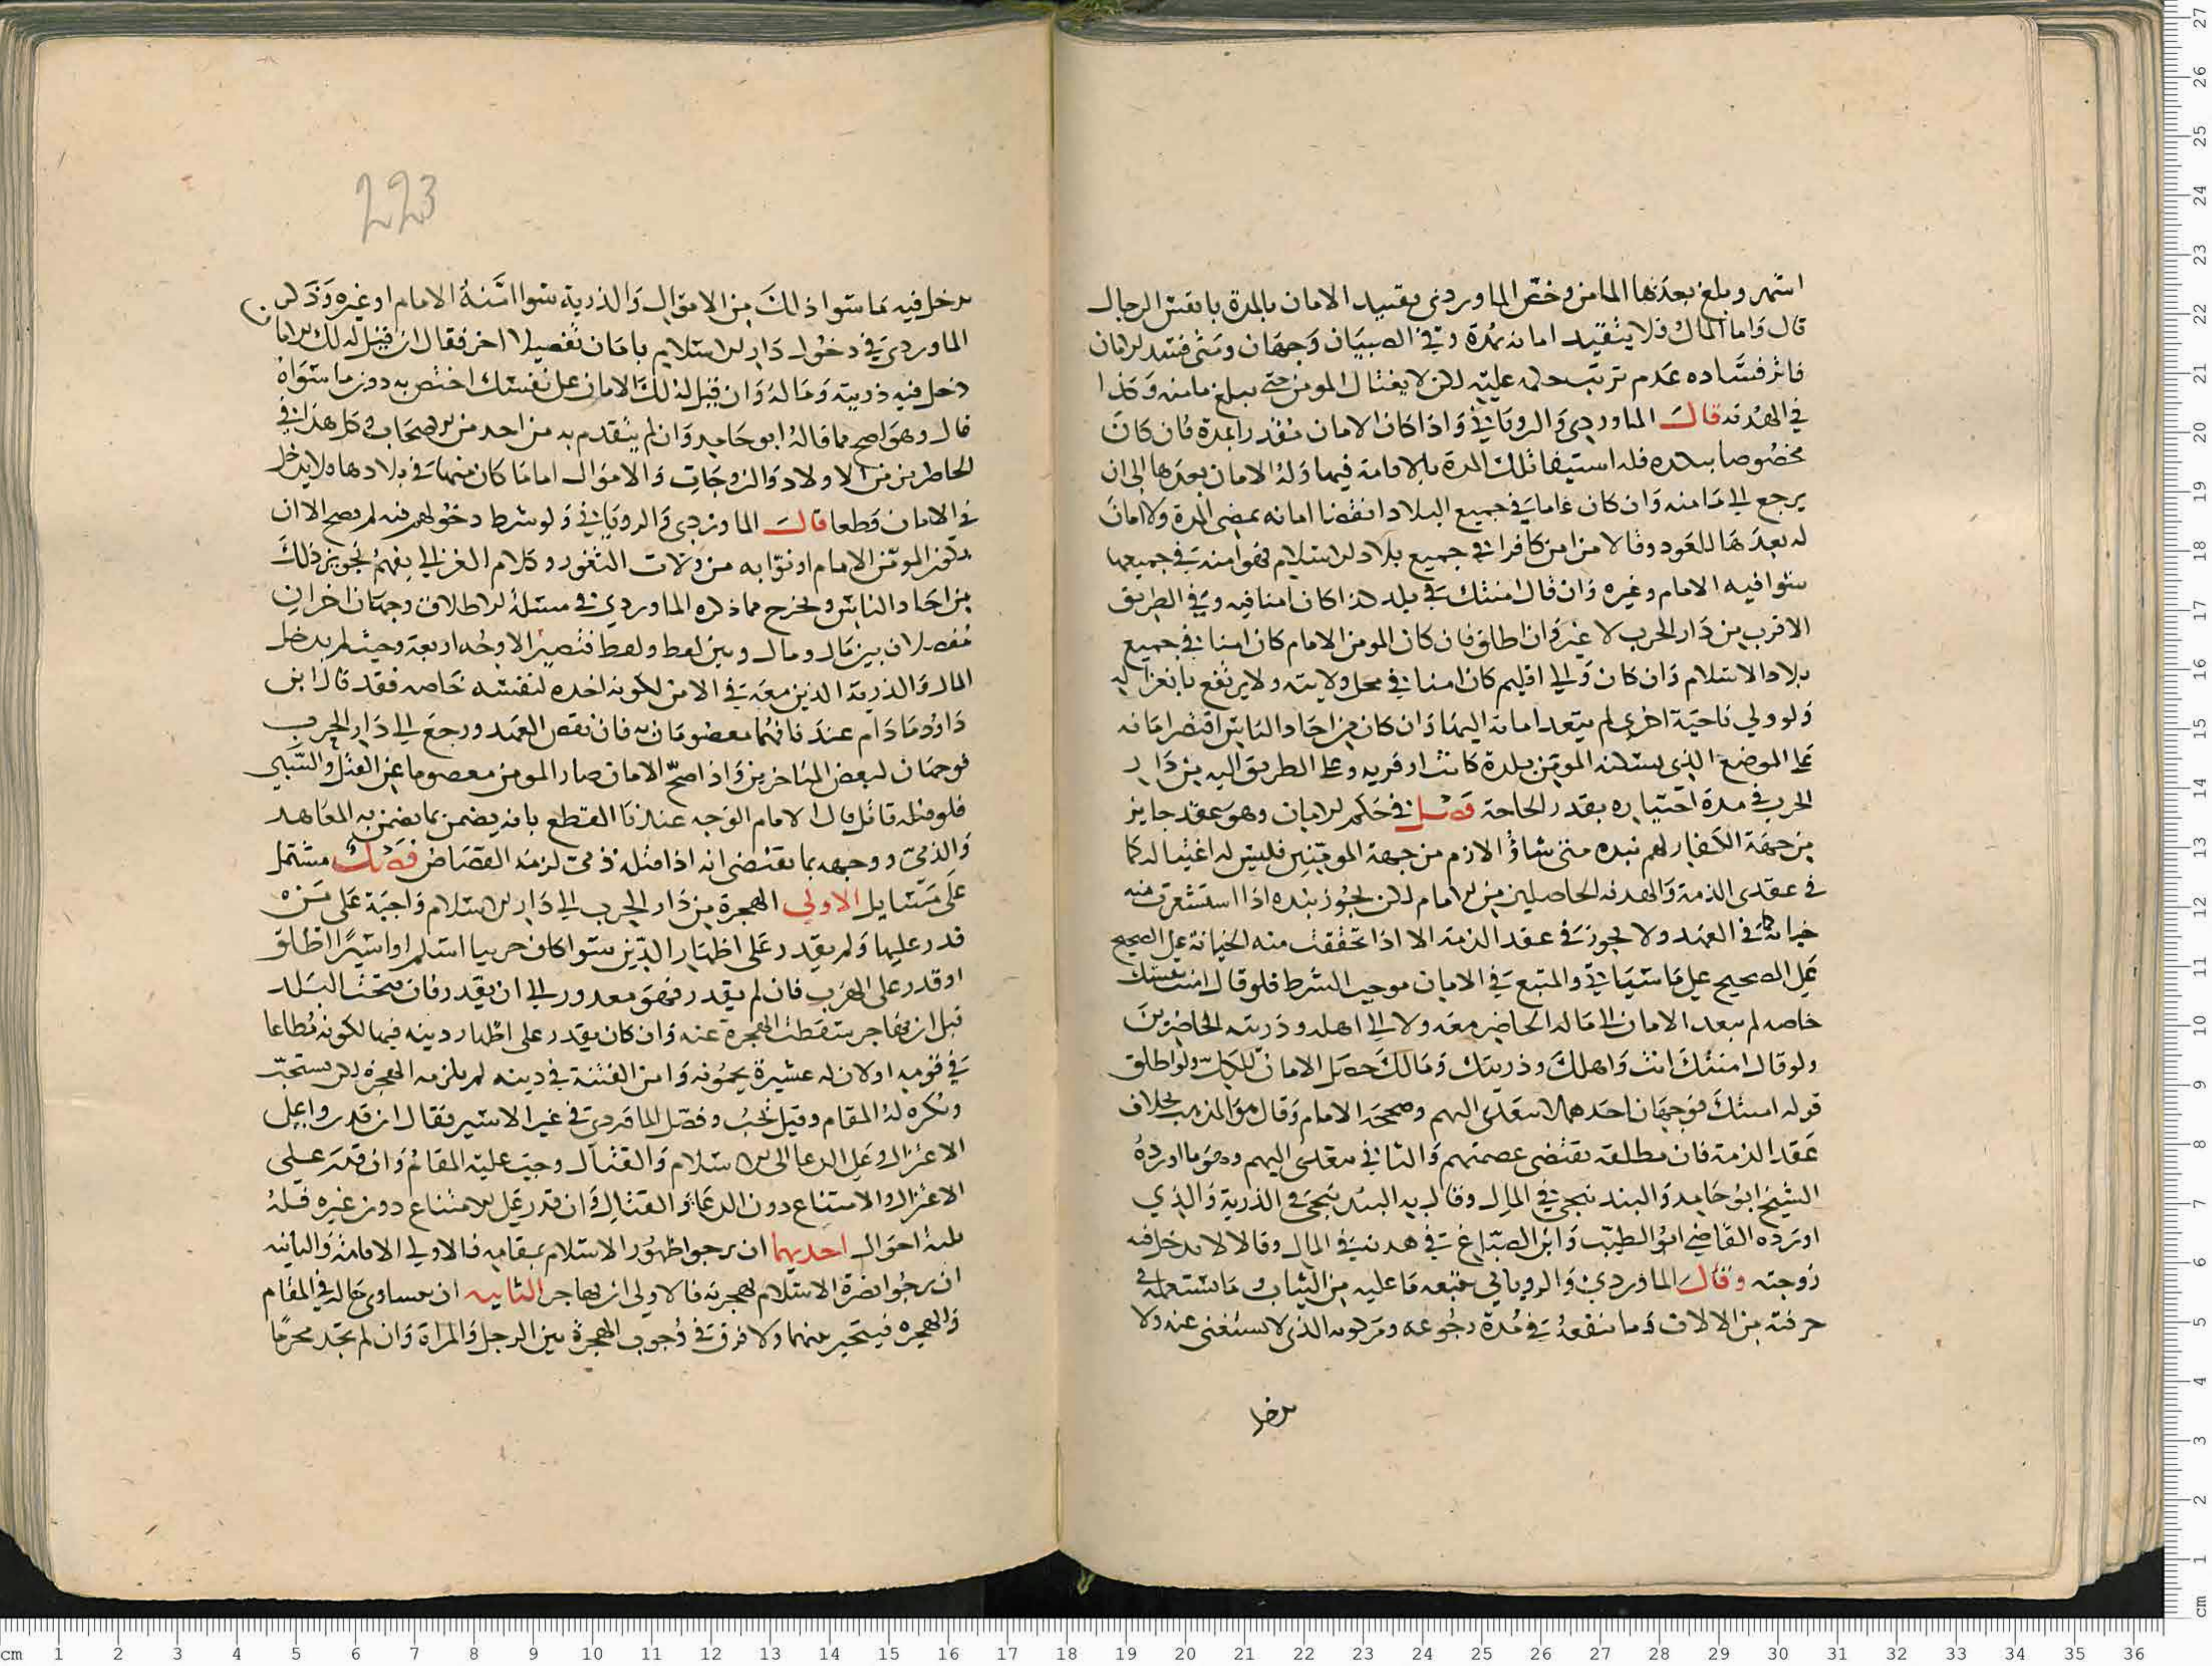 اشهر وبلغ بعدها المامن وخص الماوردي تقييد الامان بالمدة بانفس الرجال
قال واما المال فلا يتقيد امانه بمدة وفي الصبيان وجهان ومتى فسد الامان
فاثر فساده عدم ترتب حكمه عليه لكن لا يغتال المومن حتى يبلغ مامنه وكذا
في الهدنه قال الماوردي والروياني واذا كان الامان مقدرا بمدة فان كان
مخصوصا ببلده فله استيفا تلك المدة بالاقامة فيها وله الامان بعدها الى ان
يرجع الى مامنه وان كان عاما في جميع البلاد انقضا امانه بمضي المدة ولا امان
له بعدها للعود وقالا من امن كافرا في جميع بلاد الاسلام فهو امنه في جميعها
سوا فيه الامام وغيره وان قال امنتك في بلد كذا كان امنا فيه وفي الطريق
الاقرب من دار الحرب لا غير وان اطلق فان كان المومن الامام كان امنا في جميع
بلاد الاسلام وان كان والي اقليم كان امنا في محل ولايته ولا يرتفع بانعزاله
ولو ولي ناحية اخرى لم يتعد امانه اليها وان كان من احاد الناس اقتصر امانه
على الموضع الذي يسكنه المومن بلدة كانت او قريه وعلى الطريق اليه من دار
الحرب في مدة اجتيازه بقدر الحاجة فصل في حكم الامان وهو عقد جايز
من جهة الكفار لهم نبده متى شاؤا لازم من جهة المومنين فليس له اغتياله كما
في عقدي الذمة والهدنه الحاصلين من الامام لكن يجوز نبده اذا استشعر منه
خيانة كما في العهد ولا يجوز في عقد الذمة الا اذا تحققت منه الخيانة على الصحيح
على الصحيح على ما سياتي والمتبع في الامان موجب الشرط فلو قال امنت نفسك
خاصه لم يتعد الامان الى ماله الحاضر معه ولا الى اهله وذريته الحاضرين
ولو قال امنتك انت واهلك وذريتك ومالك حصل الامان للكل ولو اطلق
قوله امنتك فوجهان احدهما لا يتعدى اليهم وصححه الامام وقال هو المذهب بخلاف
عقد الذمة فان مطلقه يقتضي عصمتهم والثاني يتعدى اليهم وهو ما اورده
الشيخ ابو حامد والبندنيجي في المال وقال به البندنيجي في الذرية والذي
اورده القاضي ابو الطيب وابن الصباغ في هدنه في المال وقالا لا يدخل فيه
زوجته وقال الماوردي والروياني يتبعه ما عليه من الثياب وما يستعمله في
حرفته من الالات وما ينفقه في مدة رجوعه ومركوبه الذي لا يستغني عنه ولا
يدخل
223
يدخل فيه ما سوا ذلك من الاموال والذرية سوا امنه الامام او غيره وذكر
الماوردي في دخول دار الاسلام بامان تفصيلا اخر فقال ان قيل له لك الامان
دخل فيه ذريته وماله وان قيل له لك الامان على نفسك اختص به دون ما سواه
قال وهو اصح مما قاله ابو حامد وان لم يتقدم به من احد من الاصحاب وكل هذا في
الحاضرين من الاولاد والزوجات والاموال اما ما كان منها في بلادها ولا يدخل
في الامان قطعا قال الماوردي والروياني ولو شرط دخولهم فيه لم يصح الا ان
يكون المومن الامام او نوابه من ولات الثغور وكلام الغزالي يفهم تجويز ذلك
من احاد الناس ويخرج مما ذكره الماوردي في مسئلة الاطلاق وجهان اخران
مفصلان بين مال ومال وبين لفظ ولفظ فتصير الاوجه اربعة وحيث لم يدخل
المال والذرية الذين معه في الامن لكونه اخده لنفسه خاصه فقد قال ابن
داود ما دام عندنا فهما معصومان به فان نقض العهد ورجع الى دار الحرب
فوجهان لبعض المتاخرين واذا صح الامان صار المومن معصوما عن القتل والسبي
فلو قتله قاتل قال الامام الوجه عندنا القطع بانه يضمن بما يضمن به المعاهد
والذمي ووجهه بما يقتضي انه اذا قتله ذمي لزمه القصاص فصل مشتمل
على مسايل الاولى الهجرة من دار الحرب الى دار الاسلام واجبة على من
قدر عليها ولم يقدر على اظهار الدين سوا كان حربيا اسلم او اسيرا اطلق
او قدر على الهرب فان لم يقدر فهو معدور الى ان يقدر فان فتحت البلد
قبل ان يهاجر سقطت الهجرة عنه وان كان يقدر على اظهار دينه فيها لكونه مطاعا
في قومه او لان له عشيرة يحمونه وامن الفتنة في دينه لم يلزمه الهجرة لكن يستحب
ويكره له المقام وقيل يجب وفصل الماوردي في غير الاسير فقال ان قدر واعلى
الاعتزال وعلى الدعا الى الاسلام والقتال وجب عليه المقام وان قدر على
الاعتزال والامتناع دون الدعا والقتال وان قدر على الامتناع دون غيره فله
ثلثة احوال احديها ان يرجوا ظهور الاسلام بمقامه فالاولى الاقامة والثانيه
ان يرجوا نصرة الاسلام بهجرته فالاولى ان يهاجر الثانيه ان يتساوى حاله في المقام
والهجره فيتخير منهما ولا فرق في وجوب الهجرة بين الرجل والمراة وان لم تجد محرما